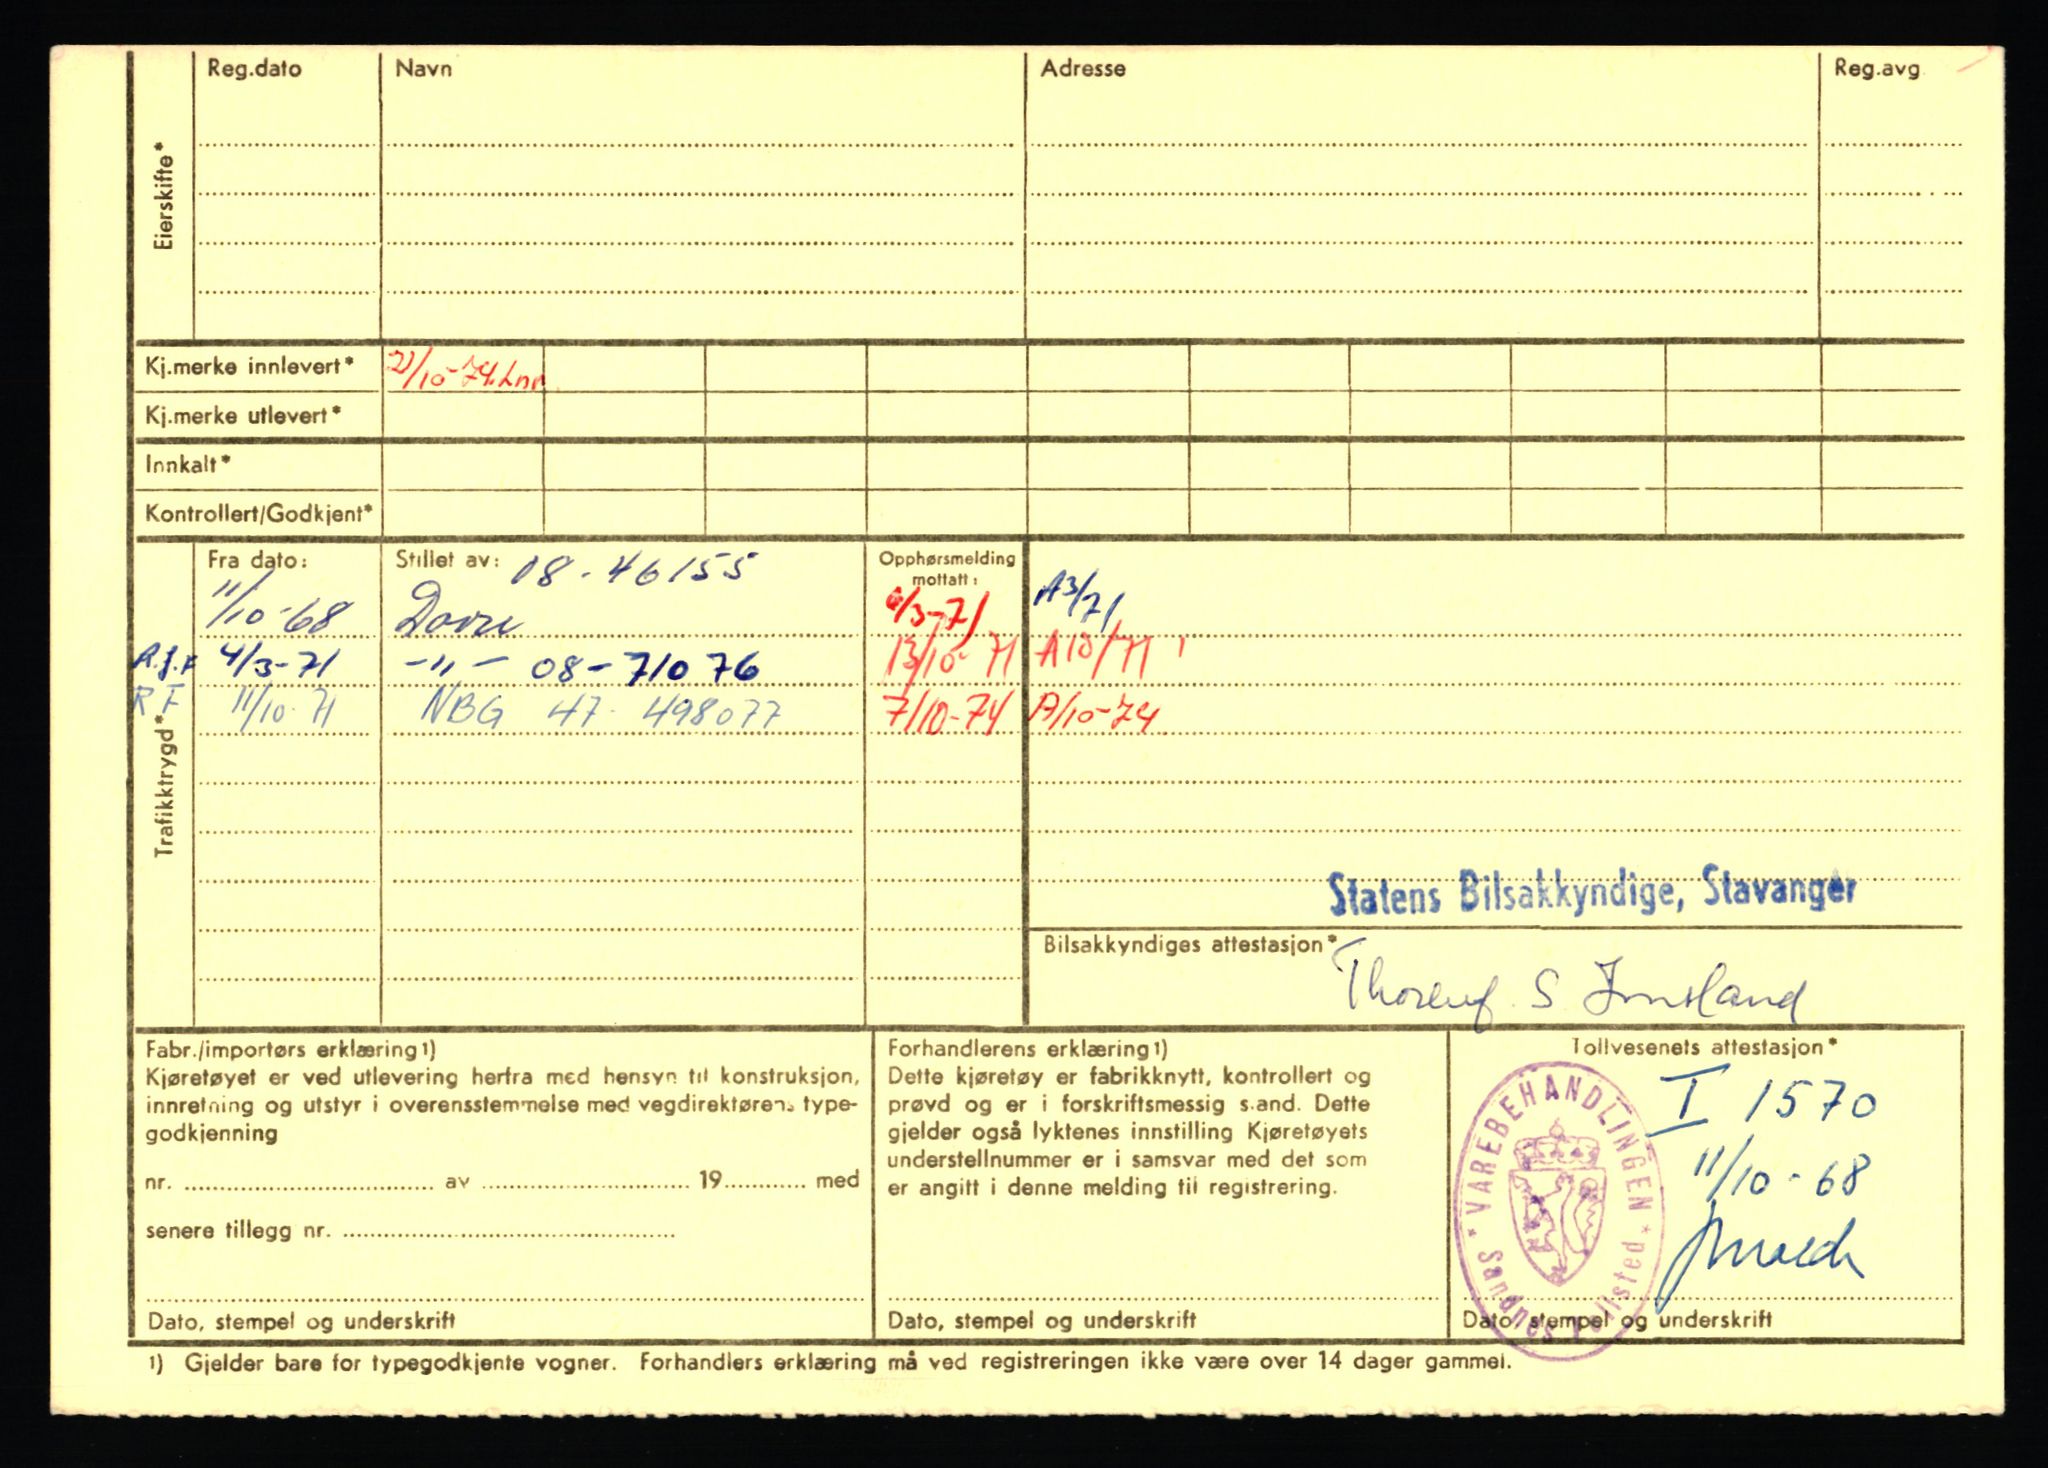 Reg.dato Navn Adresse Reg.avg
Eierskifte*
Kj.merke innlevert* 21/10-74.Lnr.
Kj.merke utlevert*
Innkalt*
Kontrollert/Godkjent*
Trafikktrygd*
Fra dato: Stillet av: 08-46155 Opphørsmelding mottatt:
11/10-68 Dovre 4/3-71 A3/71
A.g.F 4/3-71 -"- 08-71076 13/10-71 A10/71
R.F 11/10-71 NBG 47-498077 7/10-74 A/10-74
Statens Bilsakkyndige, Stavanger
Bilsakkyndiges attestasjon*
S
Fabr./importørs erklæring1)
Kjøretøyet er ved utlevering herfra med hensyn til konstruksjon,
innretning og utstyr i overensstemmelse med vegdirektørens type-
godkjenning
nr. av 19 med
senere tillegg nr.
Dato, stempel og underskrift
Forhandlerens erklæring1)
Dette kjøretøy er fabrikknytt, kontrollert og
prøvd og er i forskriftsmessig stand. Dette
gjelder også lyktenes innstilling Kjøretøyets
understellnummer er i samsvar med det som
er angitt i denne melding til registrering.
Dato, stempel og underskrift
Tollvesenets attestasjon*
I 1570
11/10-68
* VAREBEHANDLINGEN *
Sandnes Tollsted
Dato, stempel og underskrift
1) Gjelder bare for typegodkjente vogner. Forhandlers erklæring må ved registreringen ikke være over 14 dager gammel.